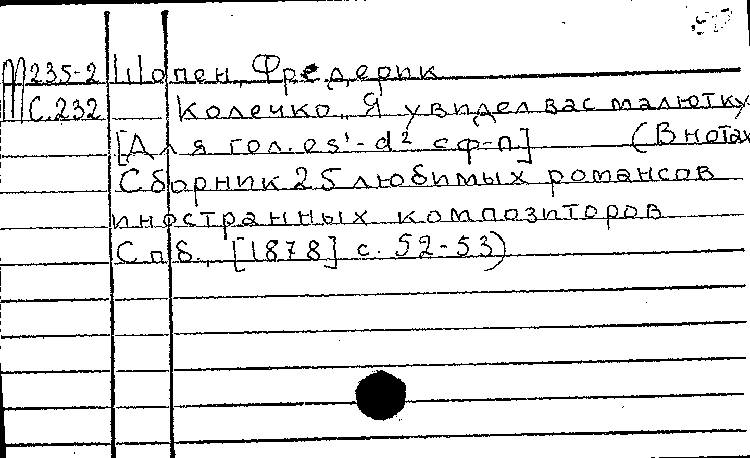 М235-2 Шопен, Фредерик
С.232 Колечко. „Я увидел вас малютку
[Для гол. es¹-d² с ф-п] (В нотах
Сборник 25 любимых романсов
иностранных композиторов
Спб., [1878] с. 52-53)